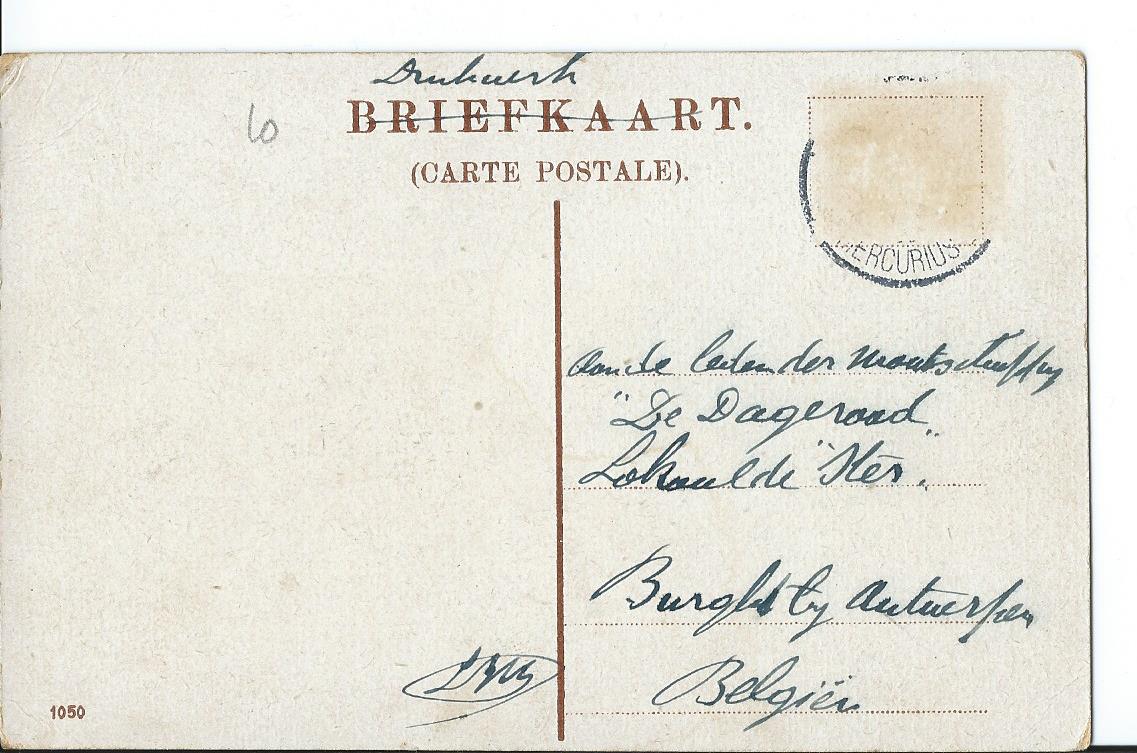 Drukwerk
BRIEFKAART.
(CARTE POSTALE).
MERCURIUS
Aan de leden der Maatschappij
"De Dageraad"
Lokaal de "Ster"
Burght by Antwerpen
Belgiën
1050